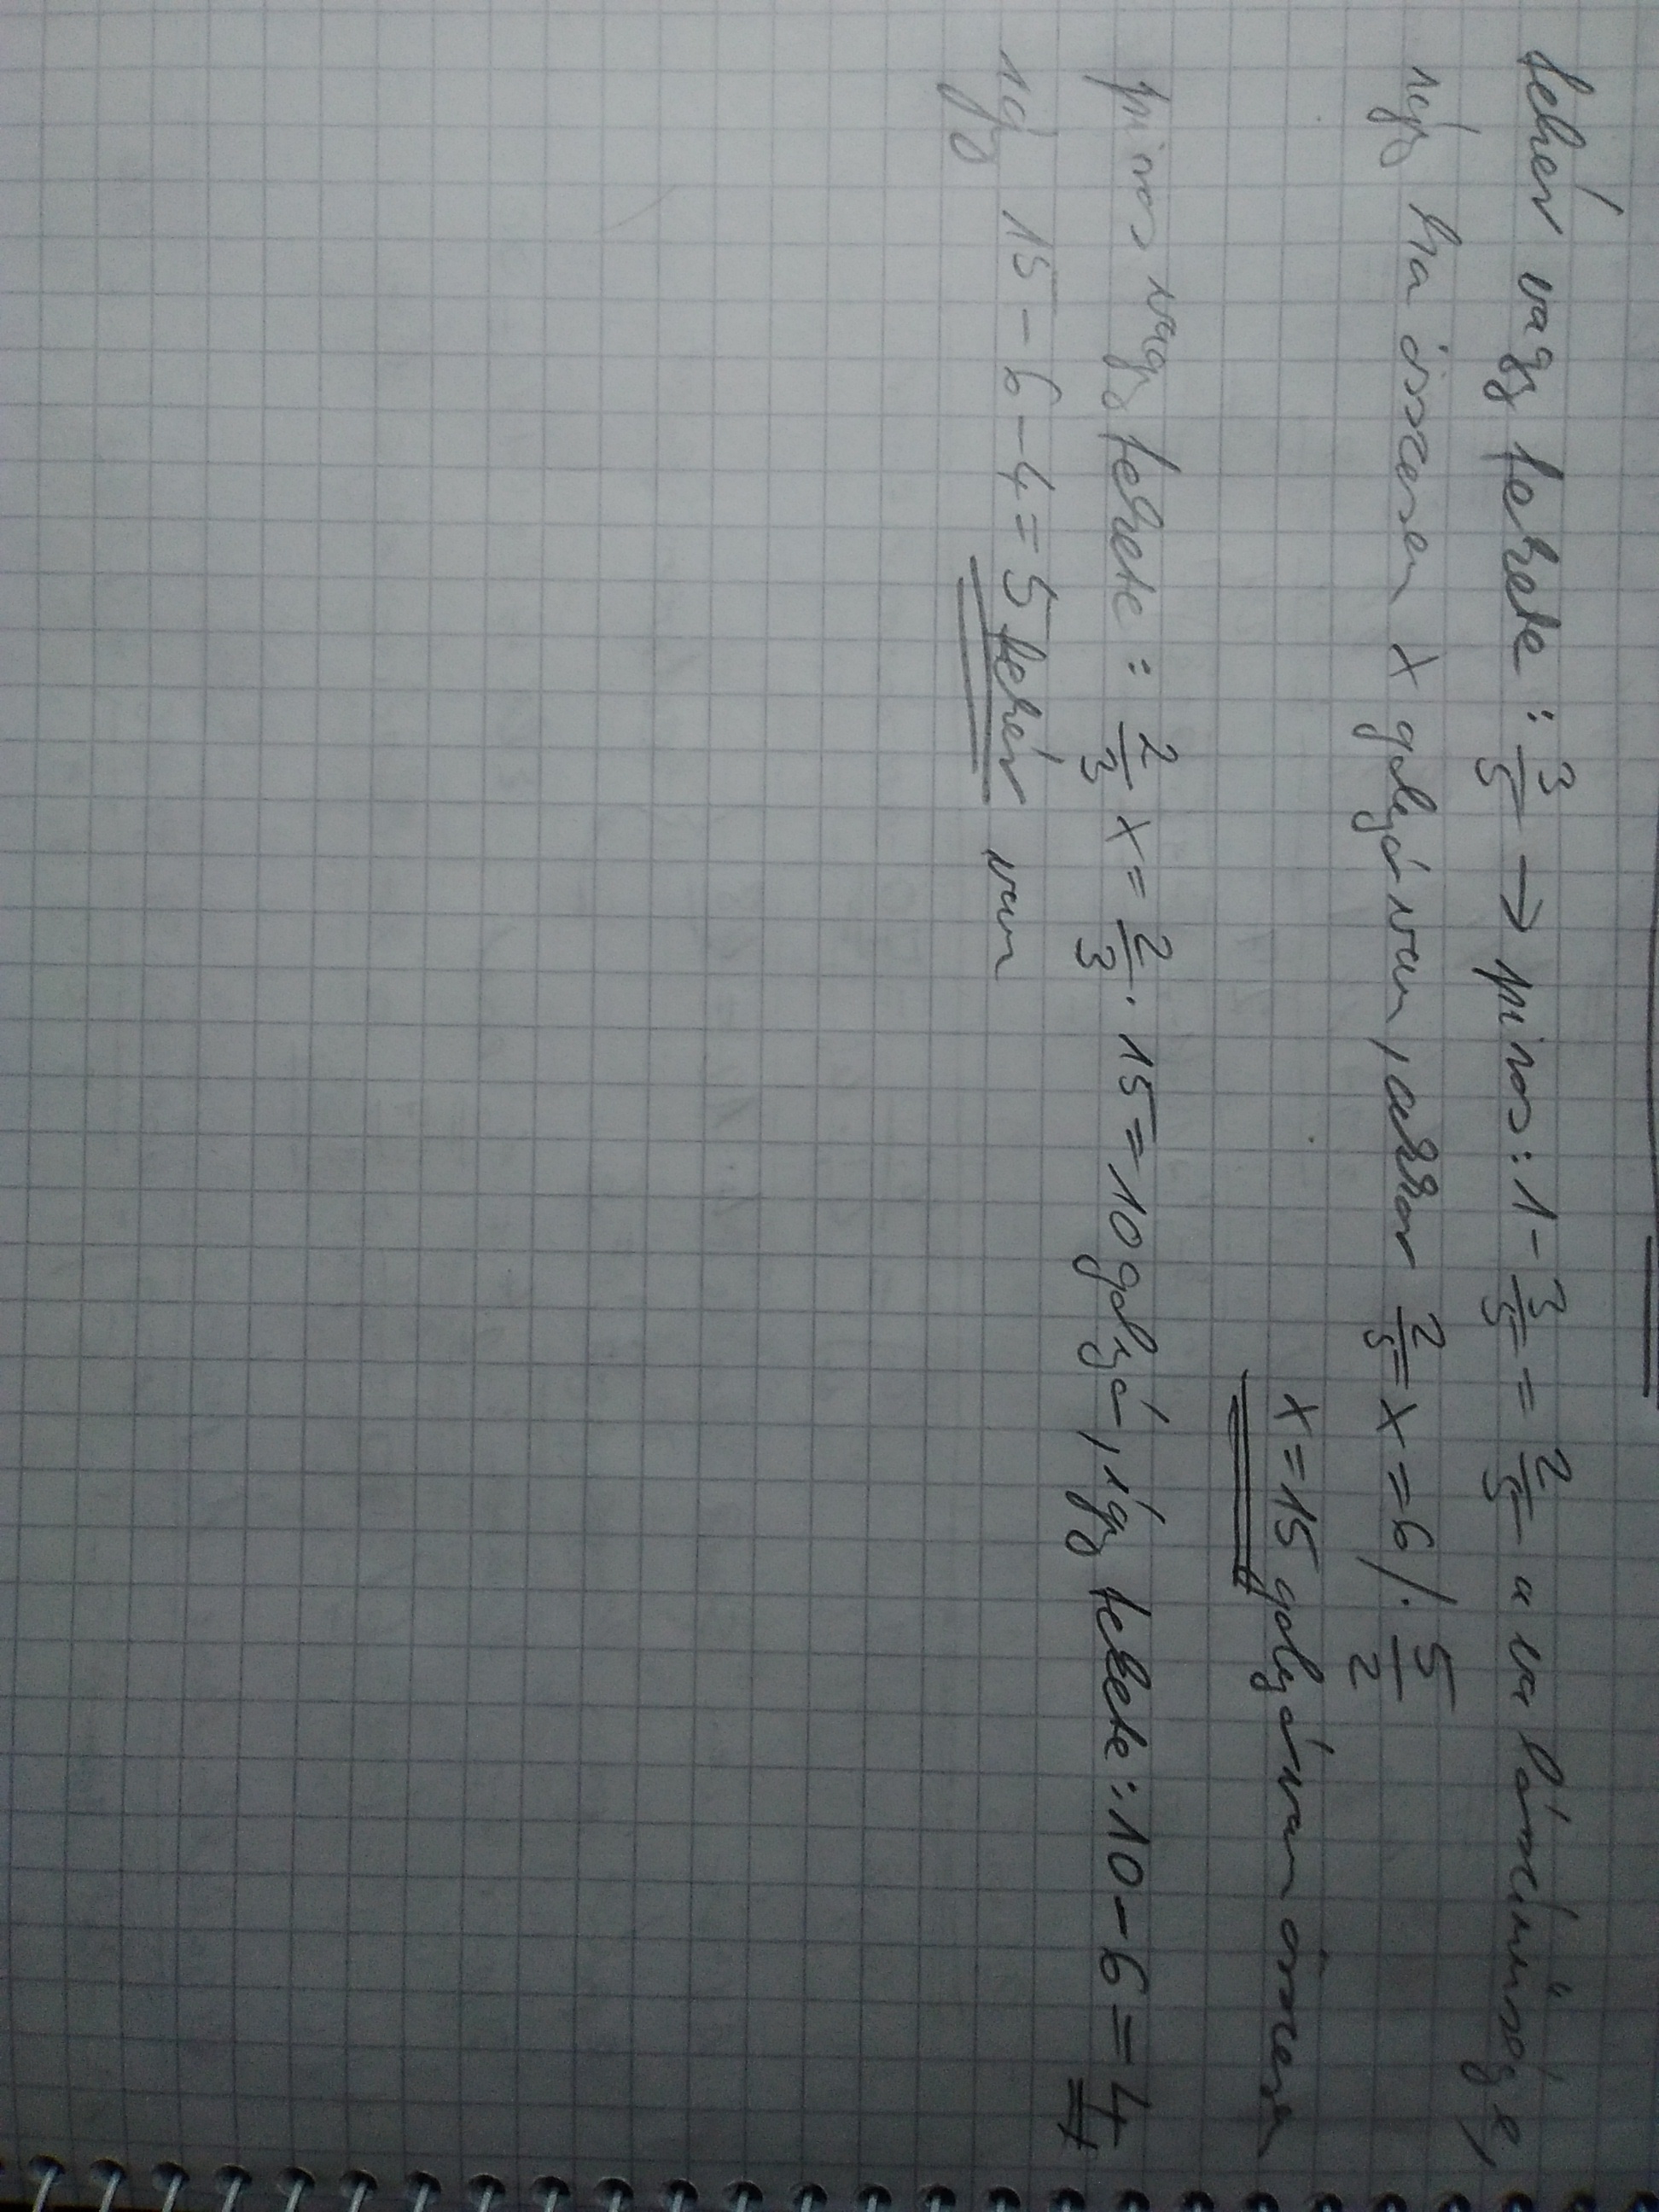 fehér vagy fekete: 3/5 → piros: 1 - 3/5 = 2/5 a valószínűsége,
így ha összesen x golyó van, akkor 2/5 x = 6 /· 5/2
x = 15 golyó van összesen
piros vagy fekete: 2/3 x = 2/3 · 15 = 10 golyó, így fekete: 10 - 6 = 4
így 15 - 6 - 4 = 5 fehér van